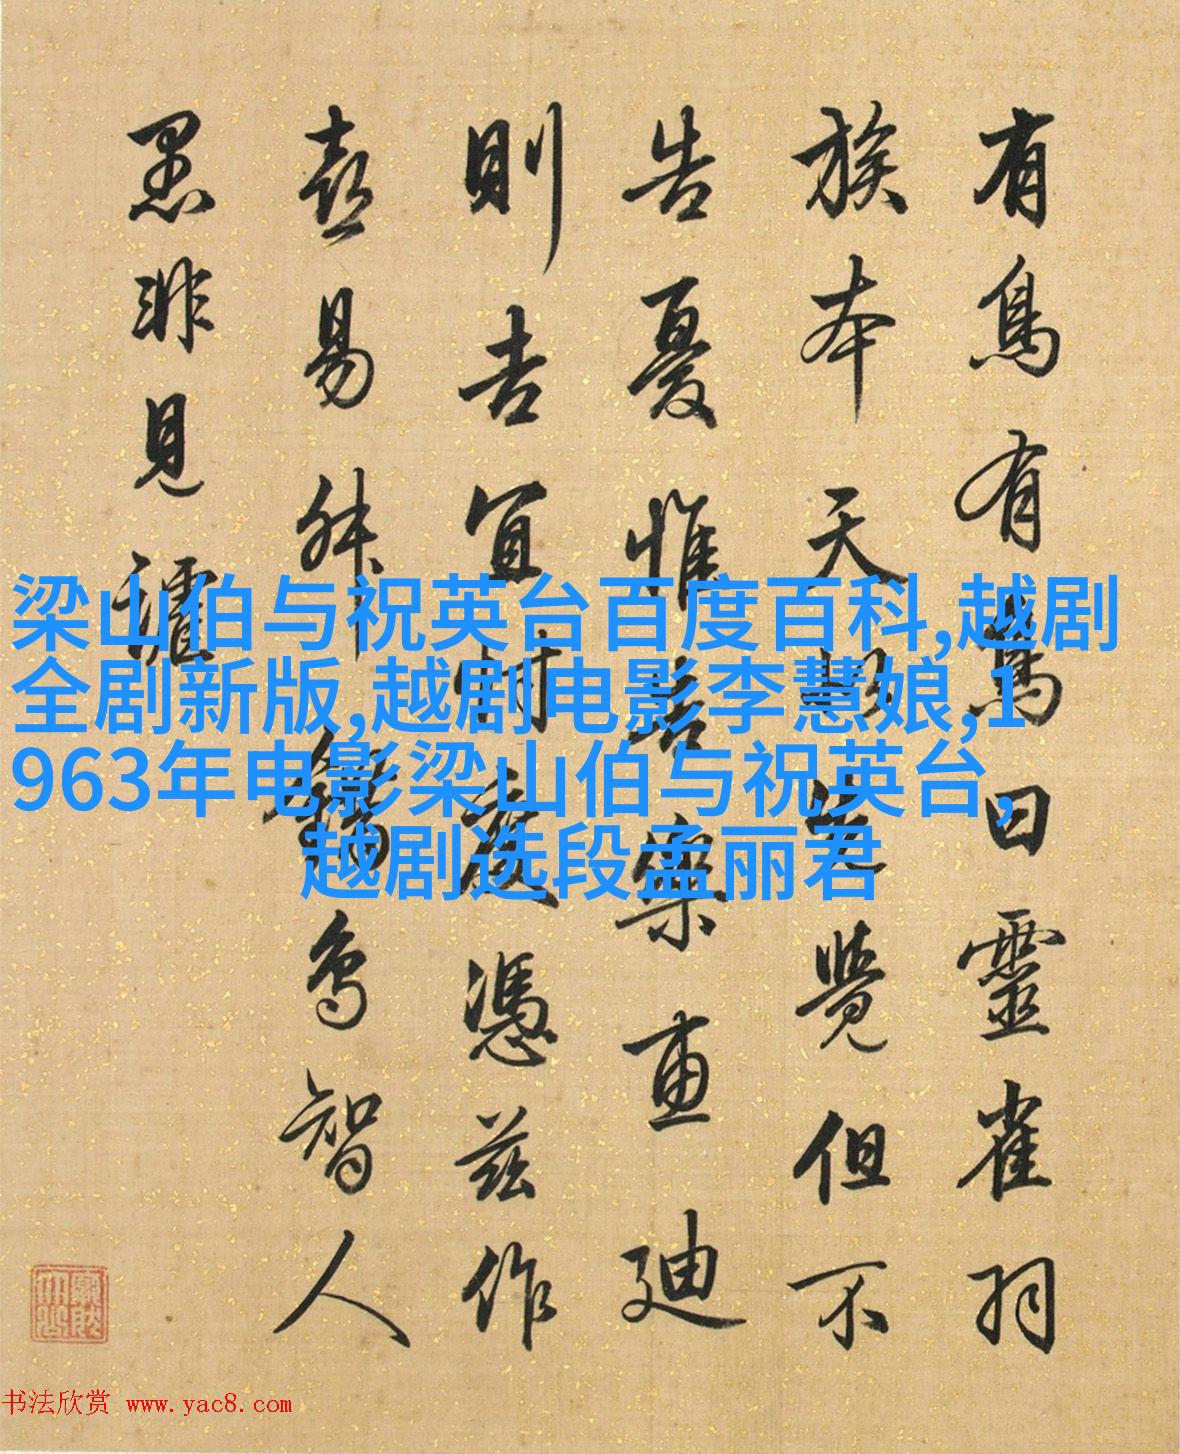 有鳥有鳥曰靈雀羽
族本天先覺但不
告憂惟告樂惠迪
則吉宜忖度憑茲作
喜易舛鳥智人
愚非見
梁山伯与祝英台百度百科,越剧
全剧新版,越剧电影李慧娘,1
963年电影梁山伯与祝英台,
越剧选段孟丽君
书法欣赏 www.yac8.com